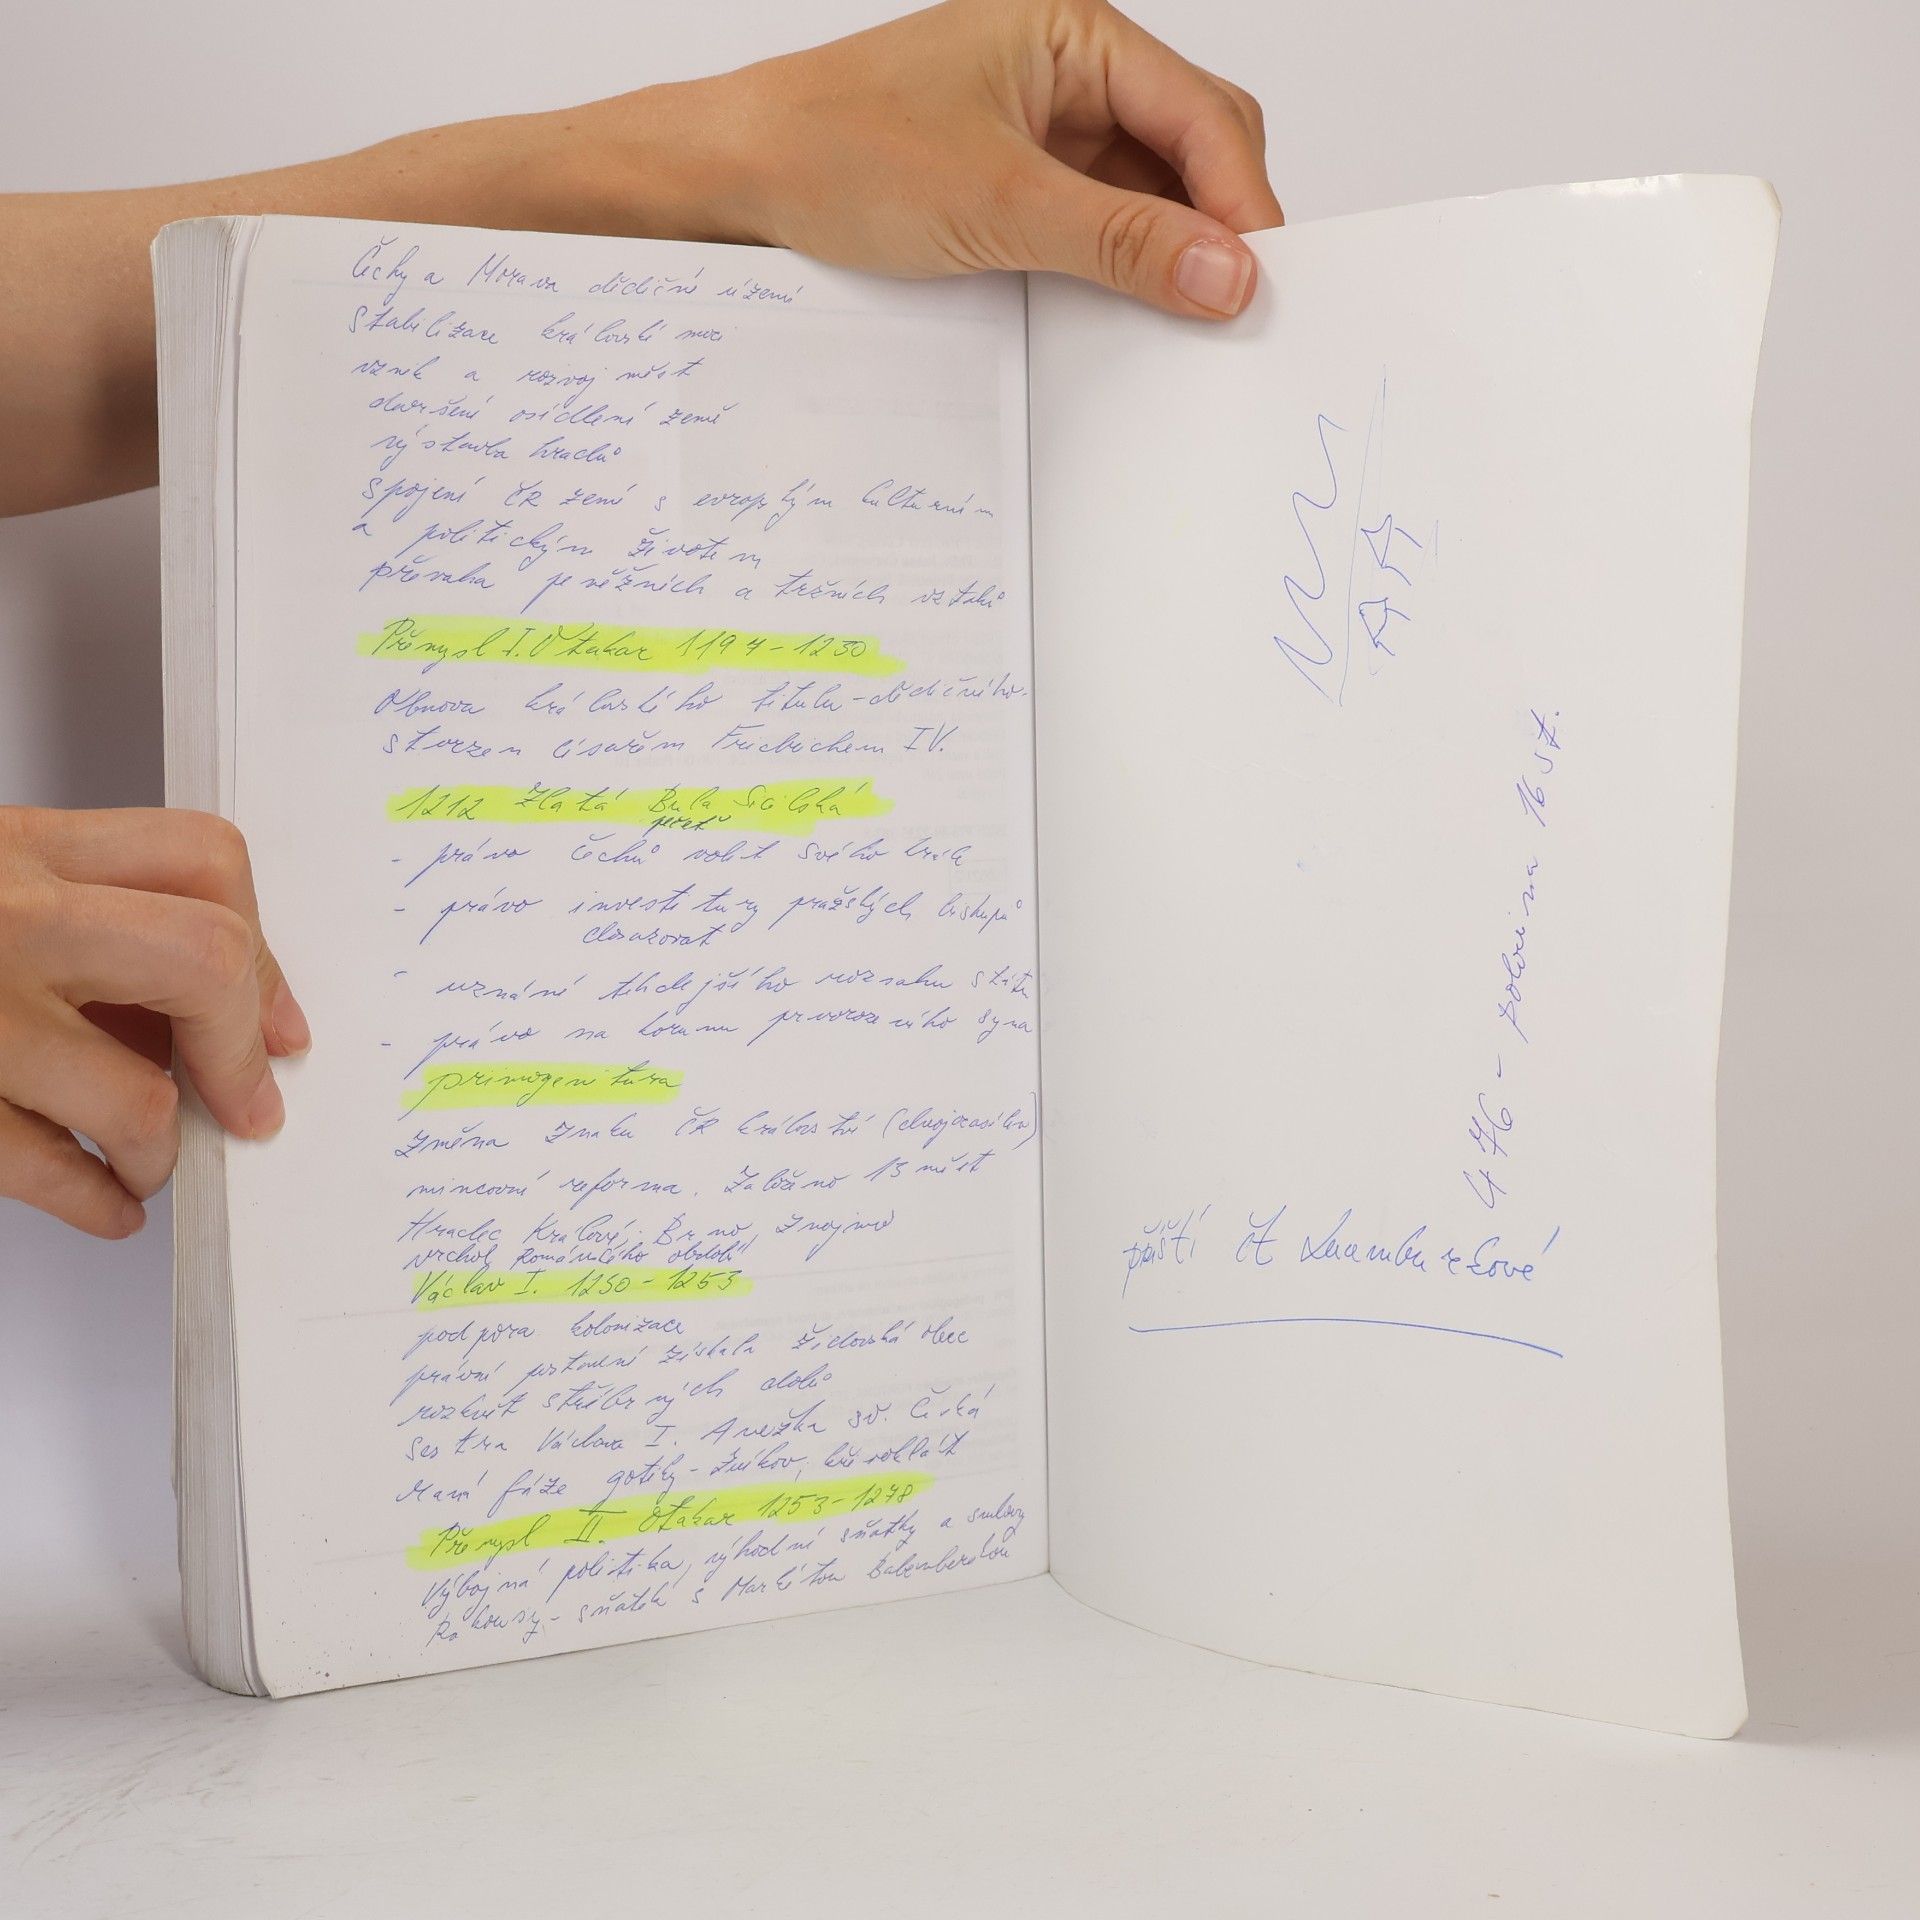 Čechy a Morava dědičné území
Stabilizace královské moci
vznik a rozvoj měst
dovršení osídlení země
výstavba hradů
Spojení ČR zemí s evropským kulturním
a politickým životem
převaha peněžních a tržních vztahů
Přemysl I. Otakar 1197-1230
Obnova královského titulu - dědičného -
stvrzen císařem Fridrichem IV.
1212 Zlatá Bula Sicilská
pečeť
- právo Čechů volit svého krále
- právo investitury pražských biskupů
dosazovat
- uznání tehdejšího rozsahu státu
- právo na korunu prvorozeného syna
primogenitura
Změna znaku ČR království (dvojocasý lev)
mincovní reforma. Založeno 13 měst
Hradec Králové, Brno, Znojmo
vrchol Románského období
Václav I. 1230-1253
podpora kolonizace
právní postavení získala židovská obec
rozkvět stříbrných dolů
sestra Václava I. Anežka sv. Česká
raná fáze gotiky - Zvíkov, Křivoklát
Přemysl II. Otakar 1253-1278
Výbojná politika, výhodné sňatky a smlouvy
Rakousy - sňatek s Markétou Babenberskou
476 - polovina 16 st.
příští čt Lucemburkové